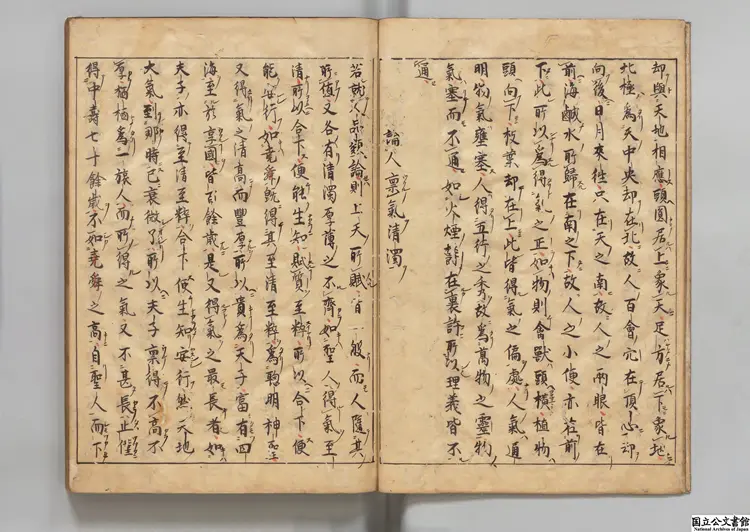 却與天地相應頭圓居上象天足方居下象地
北極為天中央却在北故人百會穴在頂心却
向後日月來往只在天之南故人之兩眼皆在
前海鹹水所歸在南之下故人之小便亦在前
下此所以為得氣之正如物則禽獸頭橫植物
頭向下枝葉却在上此皆得氣之偏處人氣通
明物氣壅塞人得五行之秀故為萬物之靈物
氣塞而不通如火煙鬱在裏許所以理義皆不
通
論人稟氣清濁
若就人品類論則上天所賦皆一般而人隨其
所值又各有清濁厚薄之不齊如聖人得氣至
清所以合下便能生知賦質至粹所以合下便
能安行如堯舜既得其至清至粹為聰明神聖
又得氣之清高而豐厚所以貴為天子富有四
海至於享國皆百餘歲是又得氣之最長者如
夫子亦得至清至粹合下便生知安行然天地
大氣到那時已衰微了所以夫子稟得不高不
厚栖栖為一旅人而所得之氣又不甚長止僅
得中壽七十餘歲不如堯舜之高自聖人而下
国立公文書館
National Archives of Japan